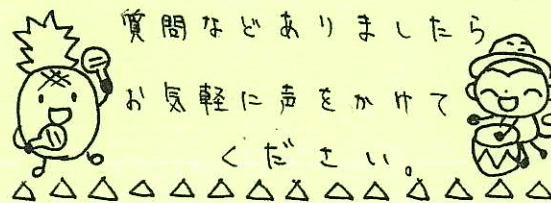 質問などありましたら
お気軽に声をかけて
ください。